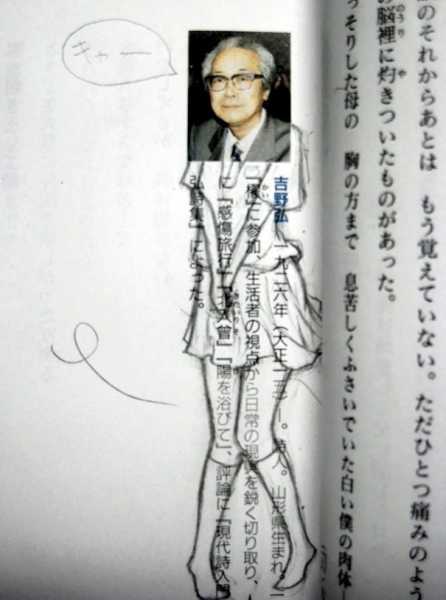 のそれからあとは　もう覚えていない。ただひとつ痛みのよう
の脳裡に灼きついたものがあった。
っそりした母の　胸の方まで　息苦しくふさいでいた白い僕の肉体―
吉野弘　一九二六年（大正一五）―。詩人。山形県生まれ。
「櫂」に参加、生活者の視点から日常の現実を鋭く切り取り、
に『感傷旅行』『北入曽』『陽を浴びて』、評論に『現代詩入門
弘詩集』によった。
キャー